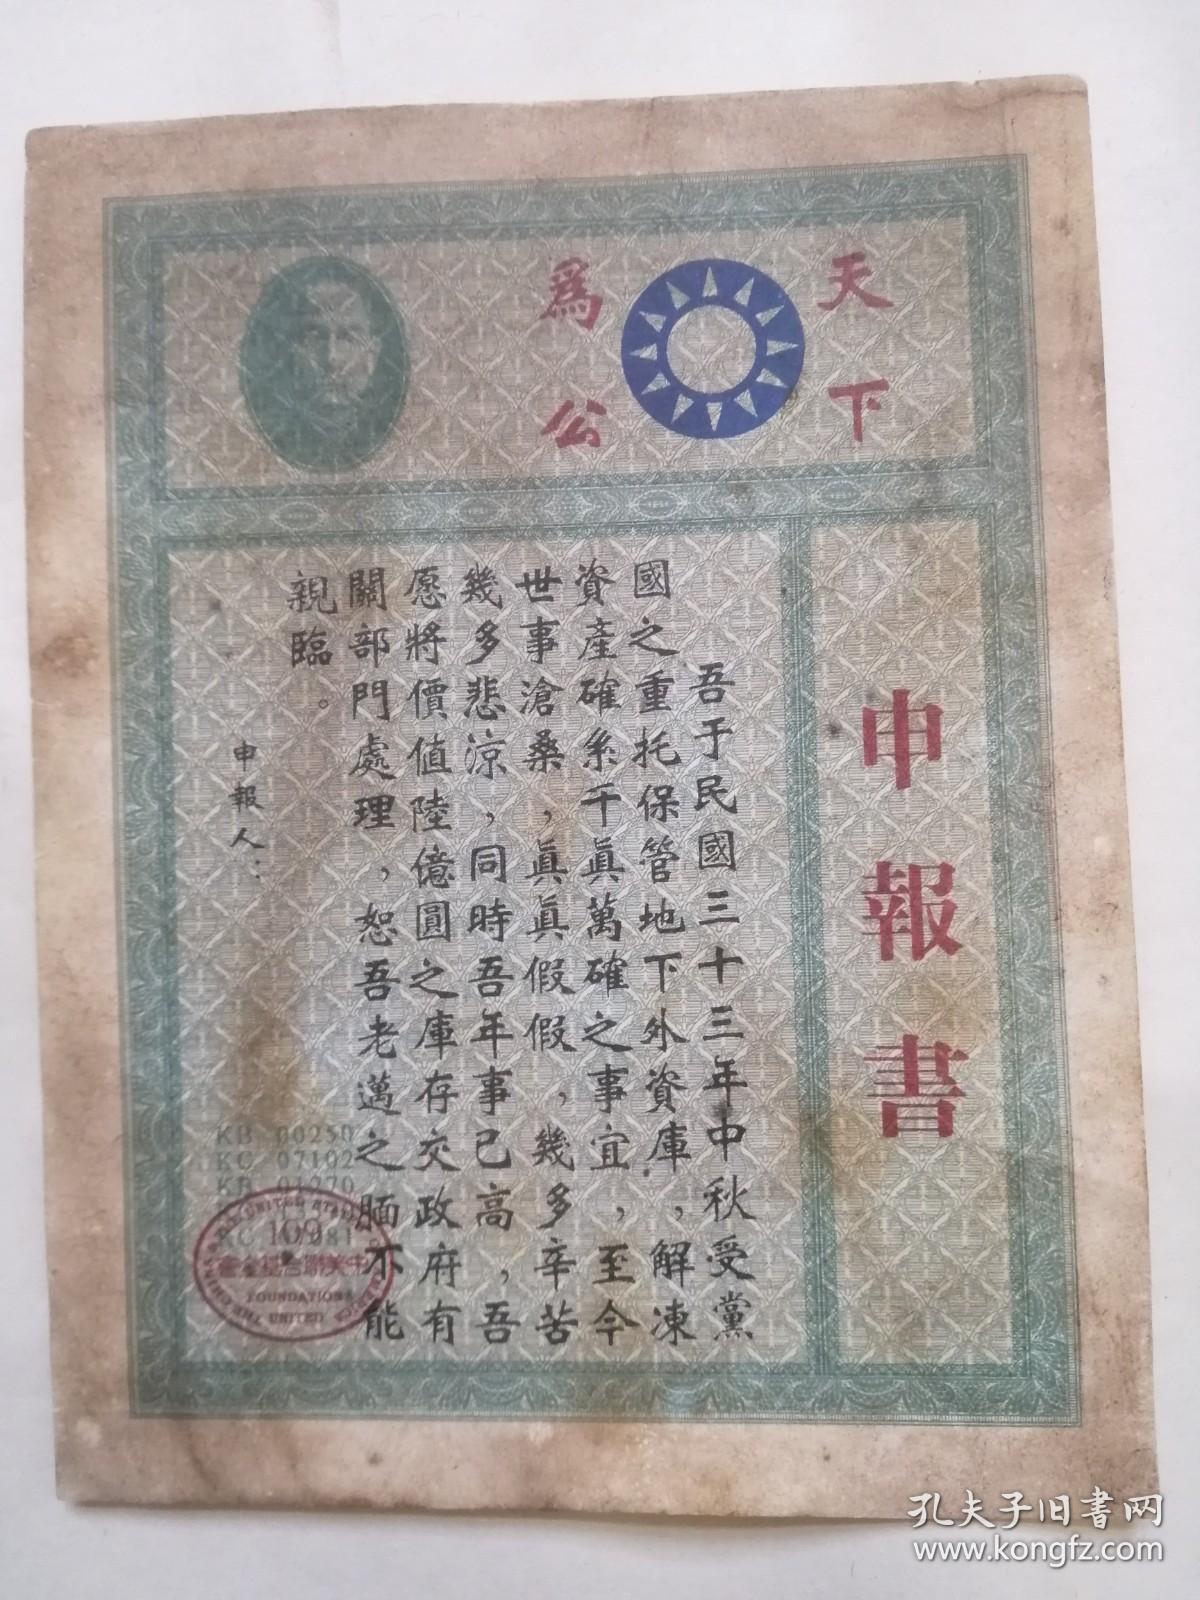 天下
爲公
申報書
吾于民國三十三年中秋受黨
國之重托保管地下外資庫，解凍
資產確系千眞萬確之事宜，至今
世事滄桑，眞眞假假，幾多辛苦
幾多悲涼，同時吾年事已高，吾
愿將價值陸億圓之庫存交政府有
關部門處理，恕吾老邁之腼不能
親臨。
申報人：
KB 00250
KC 07102
KB 01270
中美聯合基金會
FOUNDATIONS
UNITED
孔夫子旧书网
www.kongfz.com